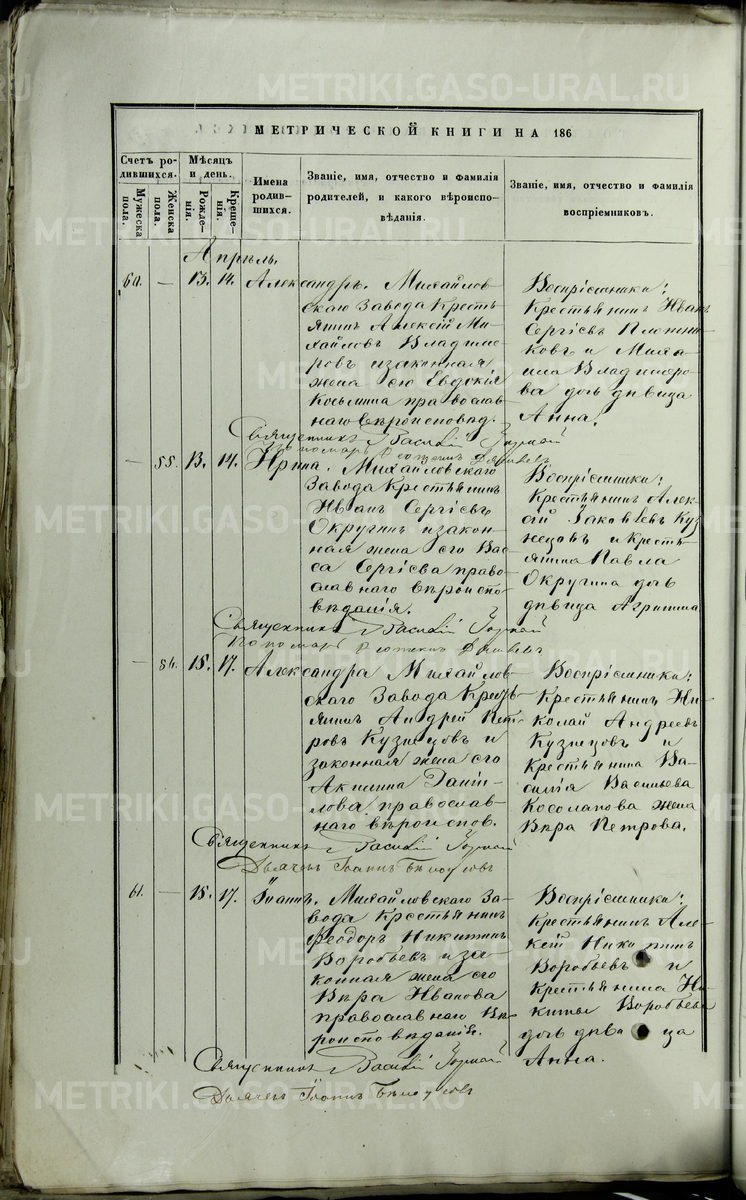 МЕТРИЧЕСКОЙ КНИГИ НА 186
Счетъ ро-
дившихся.
Мужеска
пола.
Женска
пола.
Мѣсяцъ
и день.
Рожде-
нія.
Креще-
нія.
Имена
родив-
шихся.
Званіе, имя, отчество и фамилія
родителей, и какого вѣроиспо-
вѣданія.
Званіе, имя, отчество и фамилія
воспріемниковъ.
Апрѣль.
60. — 13. 14. Александръ.
Михайлов
скаго Завода Кресть
янинъ Алексій Ми-
хайловъ Владиме
ровъ и законная
жена его Евдокія
Косьмина православ
наго вѣроисповѣд.
Воспріемники:
Крестьянинъ Иванъ
Сергіевъ Плотни-
ковъ и Миха
ила Владимеро
ва дочь дѣвица
Анна.
Священникъ Василій
— 55. 13. 14. Ирина.
Михайловскаго
Завода Крестьянинъ
Иванъ Сергіевъ
Округинъ и закон
ная жена его Вас
са Сергіева право
славнаго вѣроиспо
вѣданія.
Воспріемники:
Крестьянинъ Алек
сій Іаковлевъ Куз
нецовъ и кресть
янина Павла
Округина дочь
дѣвица Агрипина
Священникъ Василій
Пономарь
— 56. 15. 17. Александра
Михайлов
скаго Завода Кресть
янинъ Андрей Пет
ровъ Кузнецовъ и
законная жена его
Акилина Даніи-
лова православ-
наго вѣроиспов.
Воспріемники:
Крестьянинъ Ни-
колай Андреевъ
Кузнецовъ и
Крестьянина Ва-
силія Васильева
Косолапова жена
Вѣра Петрова.
Священникъ Василій
Дьячекъ Іоаннъ
61. — 15. 17. Іоаннъ.
Михайловскаго За-
вода Крестьянинъ
Феодоръ Никитинъ
Воробьевъ и за-
конная жена его
Вѣра Иванова
православнаго Вѣ-
роисповѣданія.
Воспріемники:
Крестьянинъ Але-
ксій Никитинъ
Воробьевъ и
Крестьянина Ни-
киты Воробьева
дочь дѣвица
Анна.
Священникъ Василій
Дьячекъ Іоаннъ
METRIKI.GASO-URAL.RU